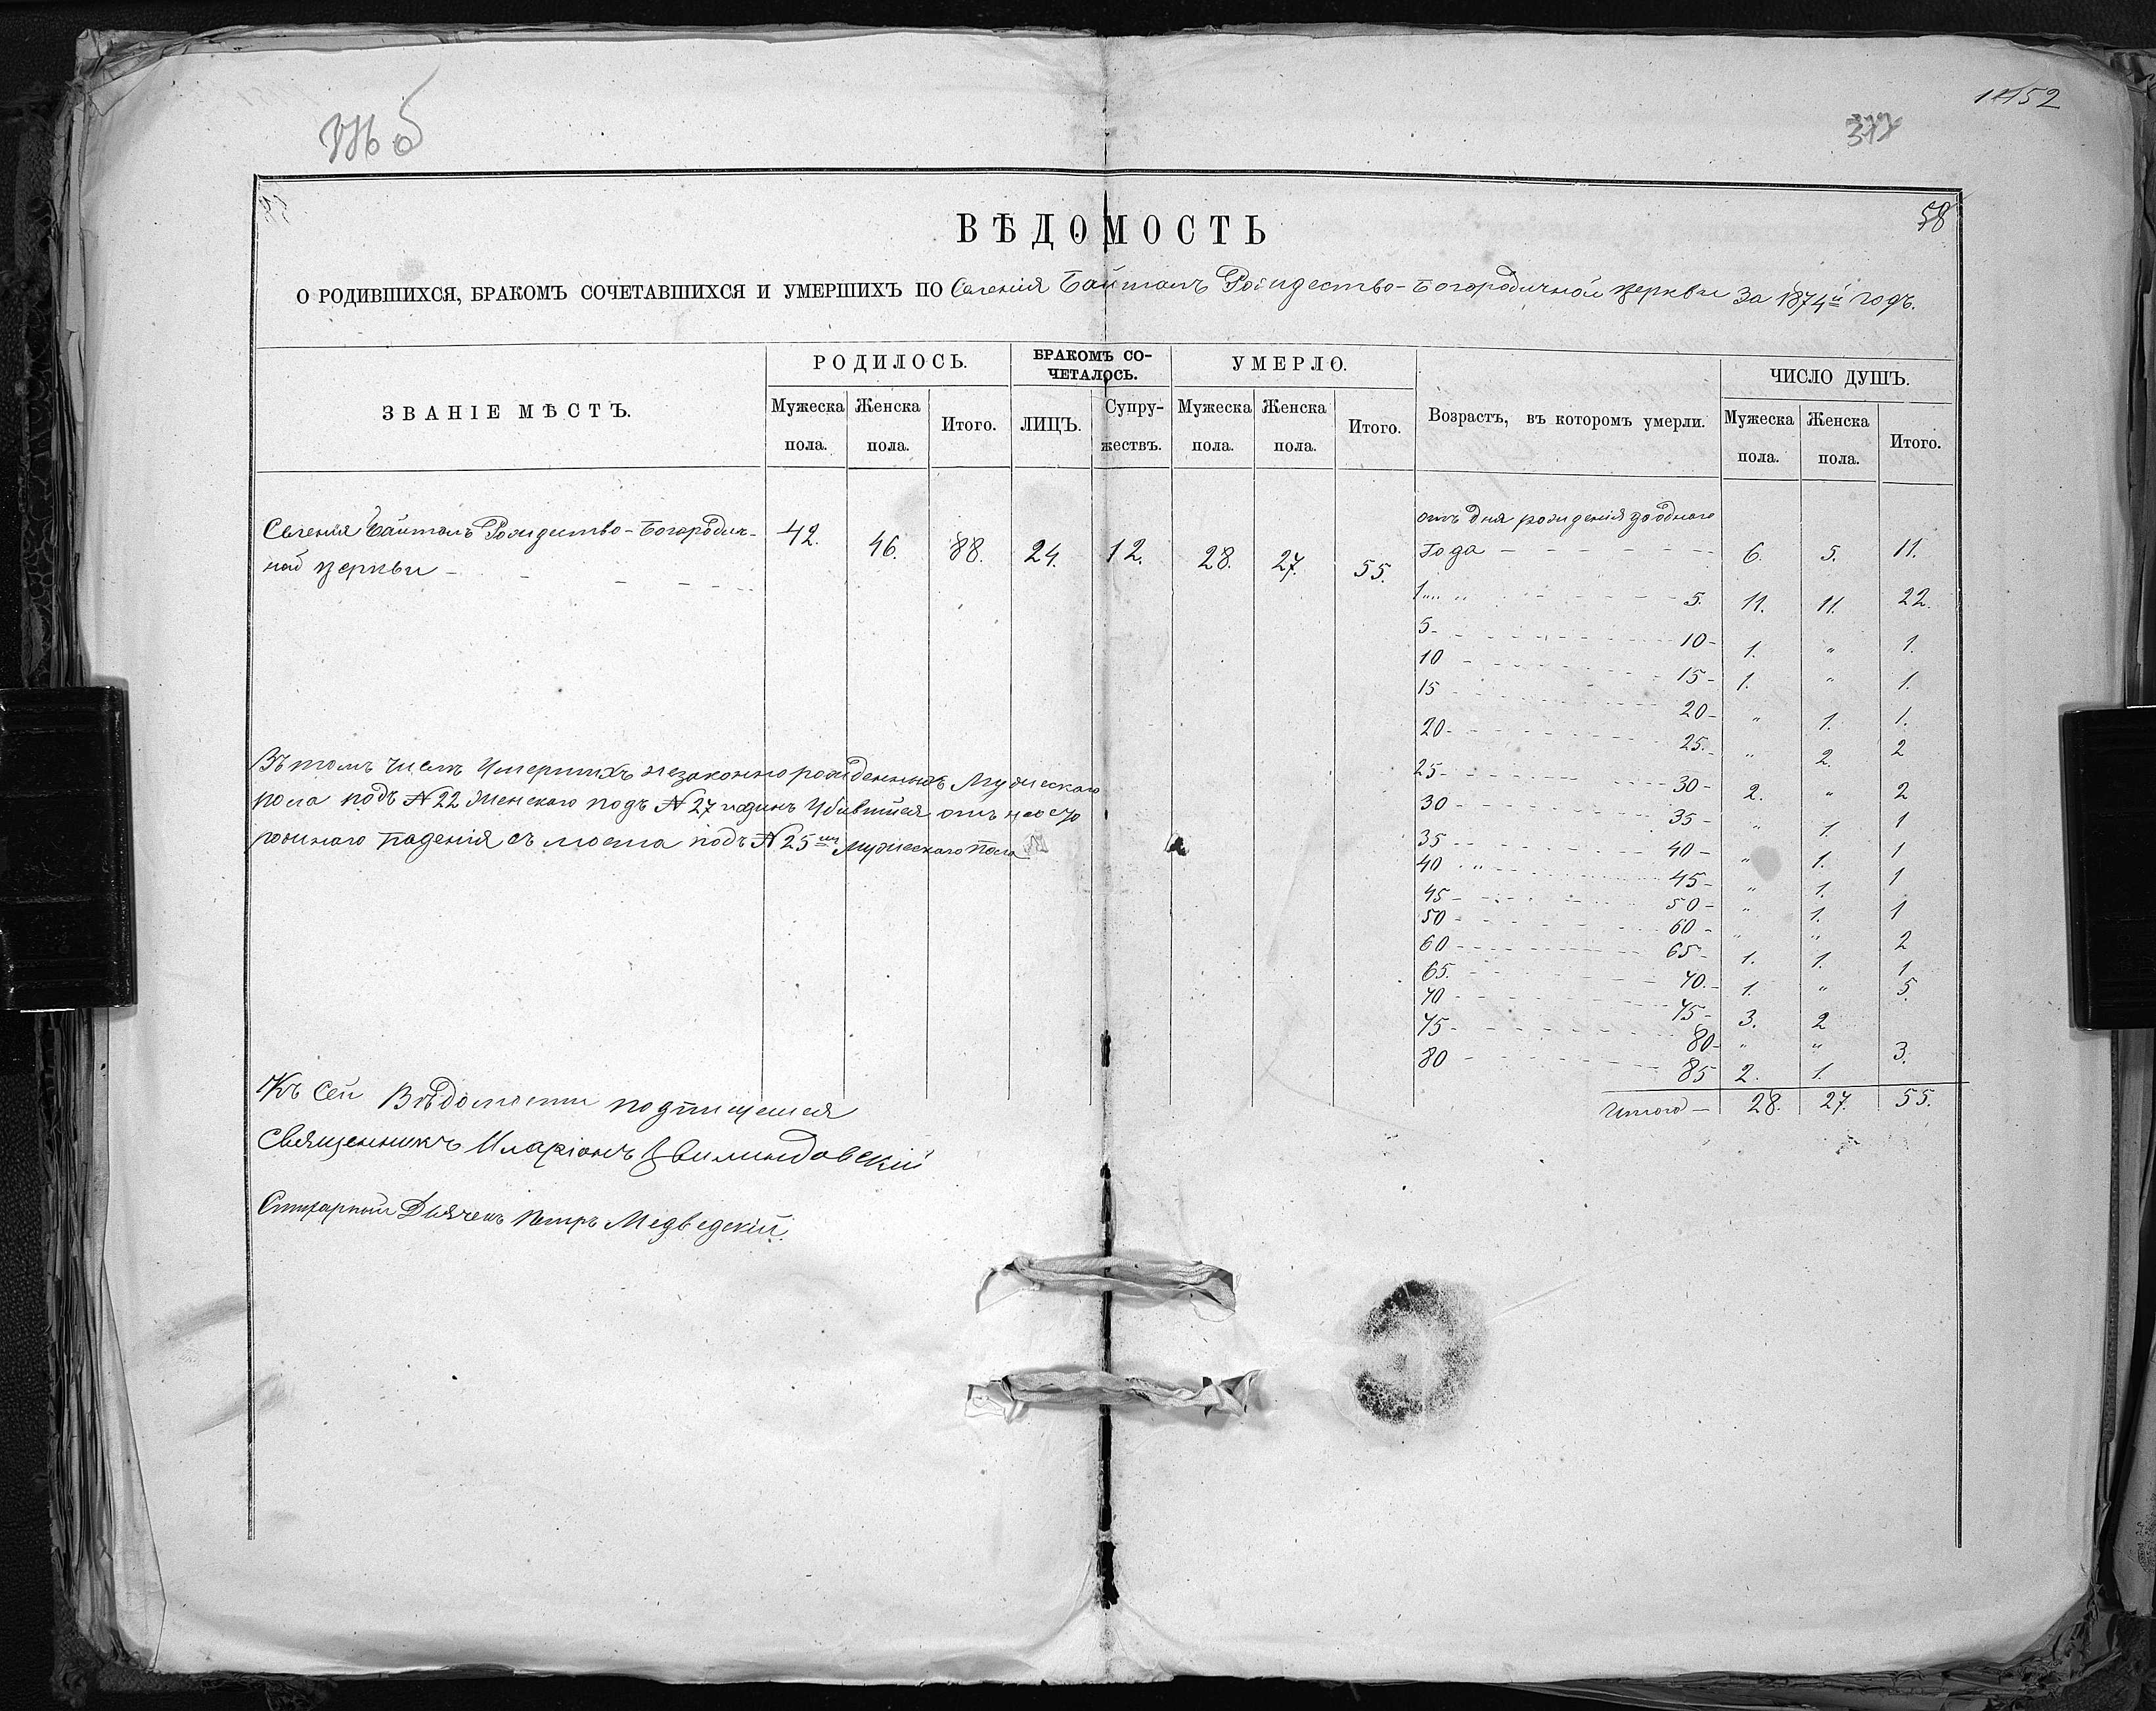 1152
377
58
ВѢДОМОСТЬ
О РОДИВШИХСЯ, БРАКОМЪ СОЧЕТАВШИХСЯ И УМЕРШИХЪ ПО Селенія Байталъ Рождество-Богородичной церкви За 1874й годъ.
ЗВАНІЕ МѢСТЪ. РОДИЛОСЬ. БРАКОМЪ СО-ЧЕТАЛОСЬ. УМЕРЛО. Возрастъ, въ которомъ умерли. ЧИСЛО ДУШЪ.
Мужеска пола. Женска пола. Итого. ЛИЦЪ. Супру-жествъ. Мужеска пола. Женска пола. Итого. Мужеска пола. Женска пола. Итого.
Селенія Байталъ Рождество-Богородич-
ной церкви 42. 46. 88. 24. 12. 28. 27. 55.
отъ дня рожденія до однаго
года 6. 5. 11.
1 5. 11. 11. 22.
5 10 1. " 1.
10 15 1. " 1.
15 20 " 1. 1.
20 25 " 2. 2
25 30 2. " 2
30 35 " 1. 1
35 40 " 1. 1
40 45 " 1. 1
45 50 " 1. 1
50 60 " "
60 65 1. 1. 2
65 70 1. " 1
70 75 3. 2 5.
75 80 " "
80 85 2. 1. 3.
Итого 28. 27. 55.
Въ томъ числѣ Умершихъ незаконно рожденныхъ Мужескаго
пола подъ № 22 Женскаго подъ № 27 и одинъ Убившійся отъ неосто
рожнаго падения съ моста подъ № 25мъ Мужескаго Пола
Къ Сей Вѣдомости подпишемся
Священникъ Иларіонъ
Стихарный Дьячекъ Петръ Медведскій.